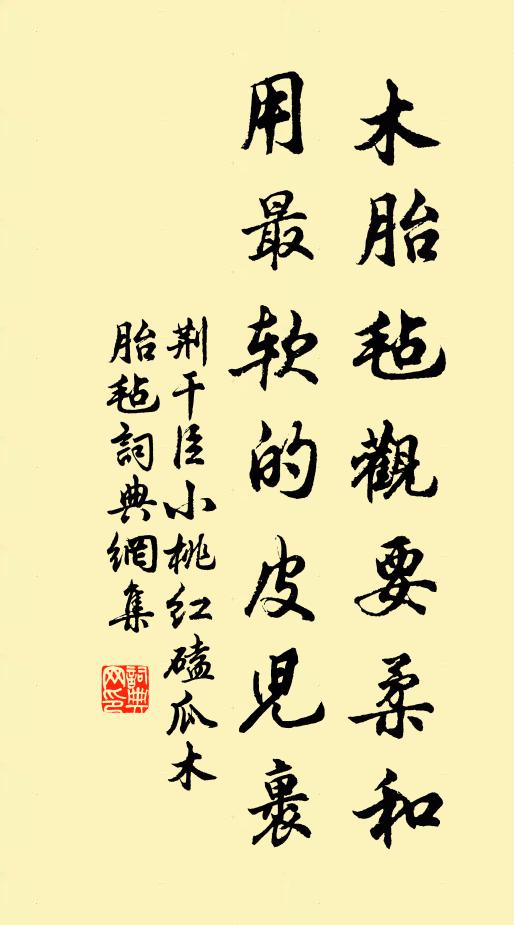 木胎毡觀要柔和
用最软的皮兒裹
荆干臣小桃红磕瓜木
胎毡詞典網集
詞典网印